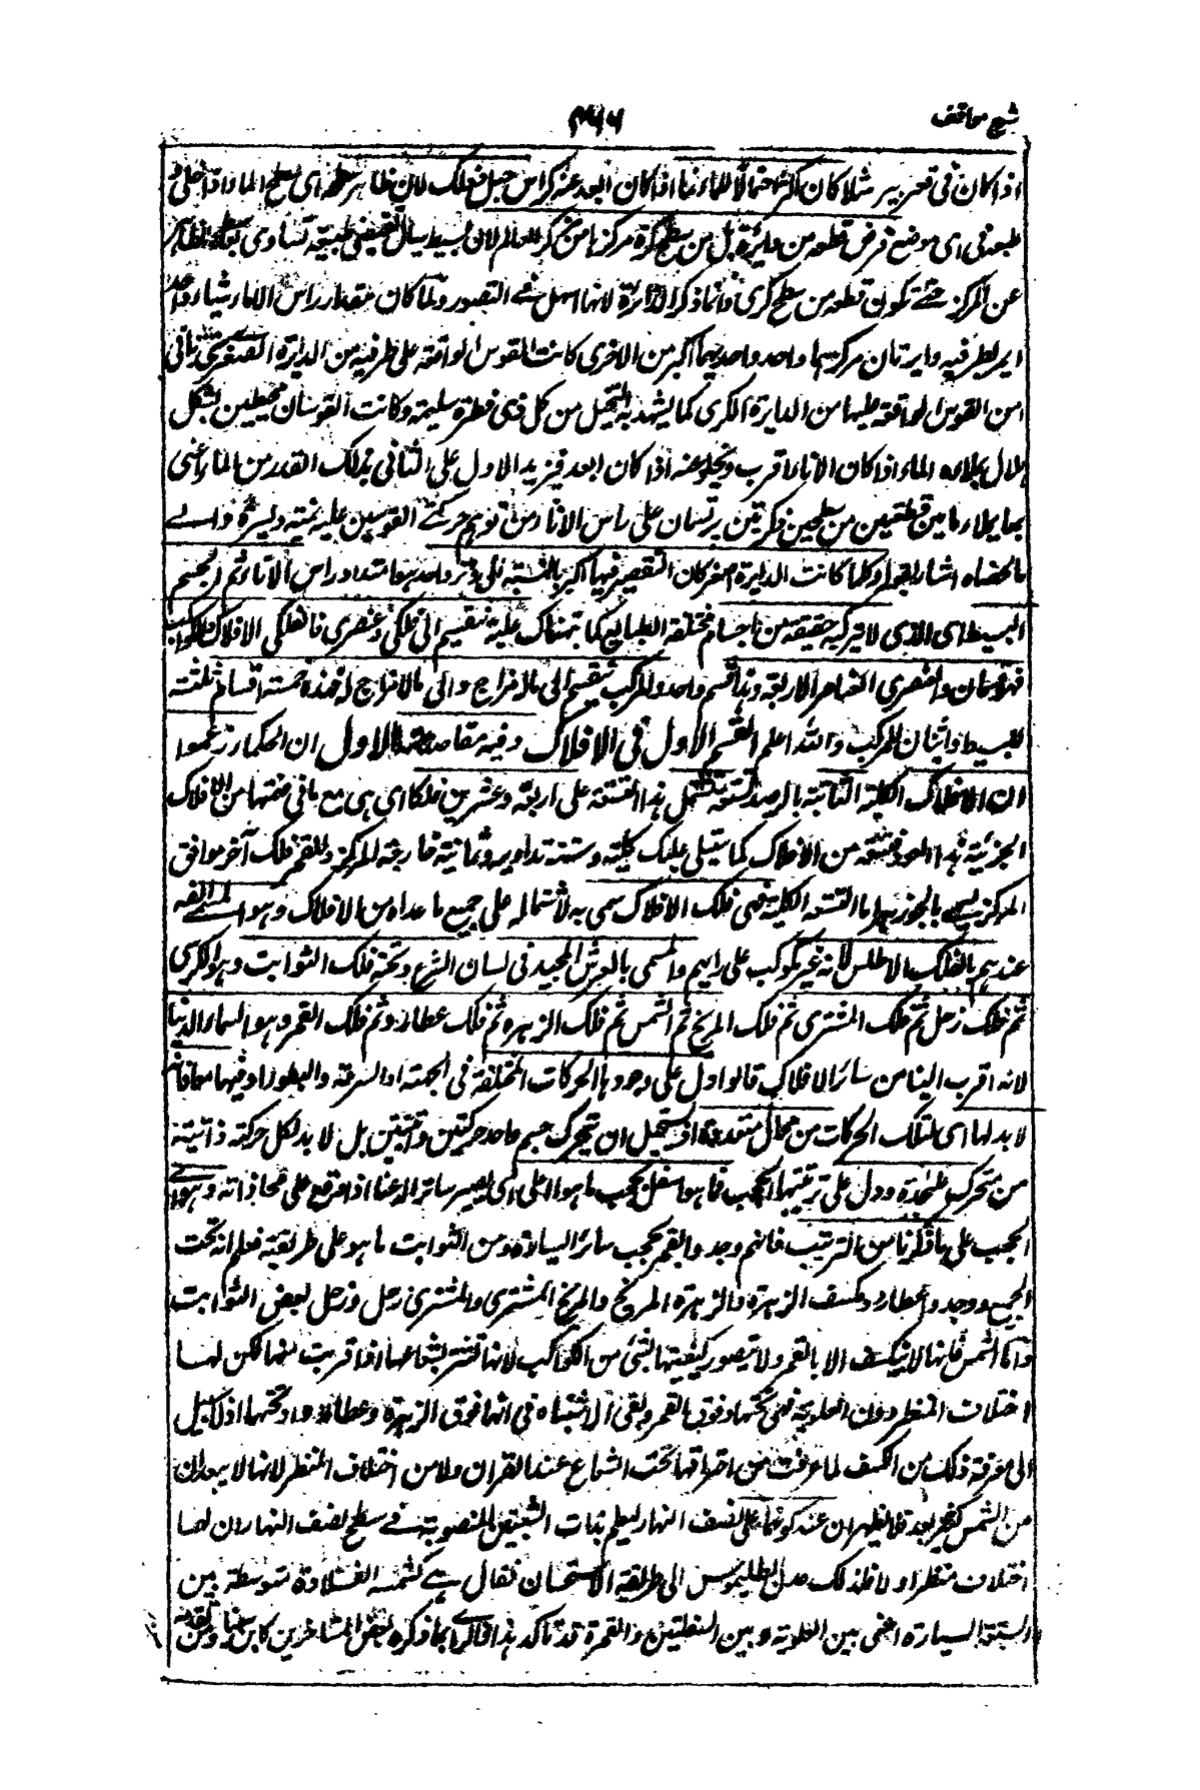 شرح مواقف
اذا كان فى قعر بير مثلا كان اكثر احتمالا للماء منها اذا كان البعد عنه كراس جبل و ذلك لان ظاهر سطحه اى سطح الماء اذا خلى و
طبعه فى اى موضع فرض قطعه من دايرة بل من سطح كرة مركزها من مركز العالم لان بسيط سيال تقتضى طبيعته تساوى بعد سطحه الظاهر
عن المركز حتى تكون قطعه من سطح كرى وانما ذكر الدائرة لانها اسهل فى التصور ولما كان مقدار راس الاناء شيئا واحدا
ير بطرفيه دايرتان مركزهما واحد واحديهما اكبر من الاخرى كانت القوس الواقعة على طرفيه من الدايرة الصغرى
من القوس الواقعة عليها من الدايرة الكبرى كما يشهد به التخيل من كل ذى فطرة سليمة وكانت القوسان محيطين بشكل
هلال يملاءه الماء اذا كان الاناء اقرب ويخلو عنه اذا كان ابعد فيزيد الاول على الثانى بذلك القدر من الماء اعنى
بما يملاء ما بين قطعتين من سطحين كريين يرتسمان على راس الاناء من توهم حركتى القوسين عليه يمنة ويسرة والى
ما لخصناه اشار بقوله وكلما كانت الدايرة اصغر كان التقصير فيها اكبر بالنسبة الى وتر واحد هو امتداد راس الاناء ثم الجسم
البسيط اى الذى لا تركيب حقيقة من اجسام مختلفة الطبائع كما نبهناك عليه ينقسم الى فلكى وعنصرى فالفلكى الافلاك والكواكب
فهو قسمان والعنصرى العناصر الاربعة وهذا قسم واحد والمركب ينقسم الى ما له مزاج والى ما لا مزاج له فهذه خمسة اقسام ثلثة
للبسيط واثنان للمركب والله اعلم القسم الاول فى الافلاك وفيه مقاصد الاول ان الحكماء زعموا
ان الافلاك الكلية الثابتة بالرصد تسعة تشتمل هذه التسعة على اربعة وعشرين فلكا اى هى مع ما فى ضمنها من الافلاك
الجزئية هذا العدد تسعة من الافلاك كما ستتلى عليك كلية وستة تداوير وثمانية خارجة المركز وللقمر فلك آخر موافق
المركز يسمى بالجوزهر اما التسعة الكلية فهى فلك الافلاك سمى به لاشتماله على جميع ما عداه من الافلاك وهو المسمى
عندهم بالفلك الاطلس لانه غير مكوكب على رايهم والمسمى بالعرش المجيد فى لسان الشرع وتحته فلك الثوابت وهو الكرسى
ثم فلك زحل ثم فلك المشترى ثم فلك المريخ ثم الشمس ثم فلك الزهره ثم فلك عطارد ثم فلك القمر وهو السماء الدنيا
لانه اقرب الينا من سائر الافلاك قالوا دل على وجودها الحركات المختلفة فى الجهة او السرعة والبطوء او فيهما معا فانه
لا بد لها اى لتلك الحركات من محال متعددة اذ يستحيل ان يتحرك جسم واحد حركتين ذاتيتين بل لا بد لكل حركة ذاتية
من متحرك علحدة ودل على ترتيبها الحجب فما هو اسفل يحجب ما هو اعلى اى يصير ساترا له عنا اذا وقع على محاذاته وهو اى
الحجب على ما ذكرنا من الترتيب فانهم وجدوا القمر يحجب سائر السيارة ومن الثوابت ما هو على طريقته فعلم انه تحت
الجميع ووجدوا عطارد يكسف الزهرة والزهرة المريخ والمريخ المشترى والمشترى زحل وزحل بعض الثوابت
واما الشمس فانها لا ينكسف الا بالقمر ولا يتصور كسفها بشئ من الكواكب لانها تستتر بشعاعها اذا قربت منها لكن لها
اختلاف المنظر دون العلوية فهى تحتها وفوق القمر وبقى الاشتباه فى انها فوق الزهرة وعطارد او تحتهما اذ لا سبيل
الى معرفة ذلك من الكسف لما عرفت من احتراقها تحت الشعاع عند القران ولا من اختلاف المنظر لانها لا يبعدان
من الشمس كثير بعد فلا يظهران عند كونهما على نصف النهار ليعلم بذات الشعبتين المنصوبة فى سطح نصف النهار ان لهما
اختلاف منظر او لا فلذلك عدل بطليموس الى طريقة الاستحسان فقال هى كشمسة القلادة متوسطة بين
الستة السيارة اعنى بين العلوية وبين السفليتين والقمر وقد تاكد هذا الراى بما ذكره بعض المتاخرين كابن سينا